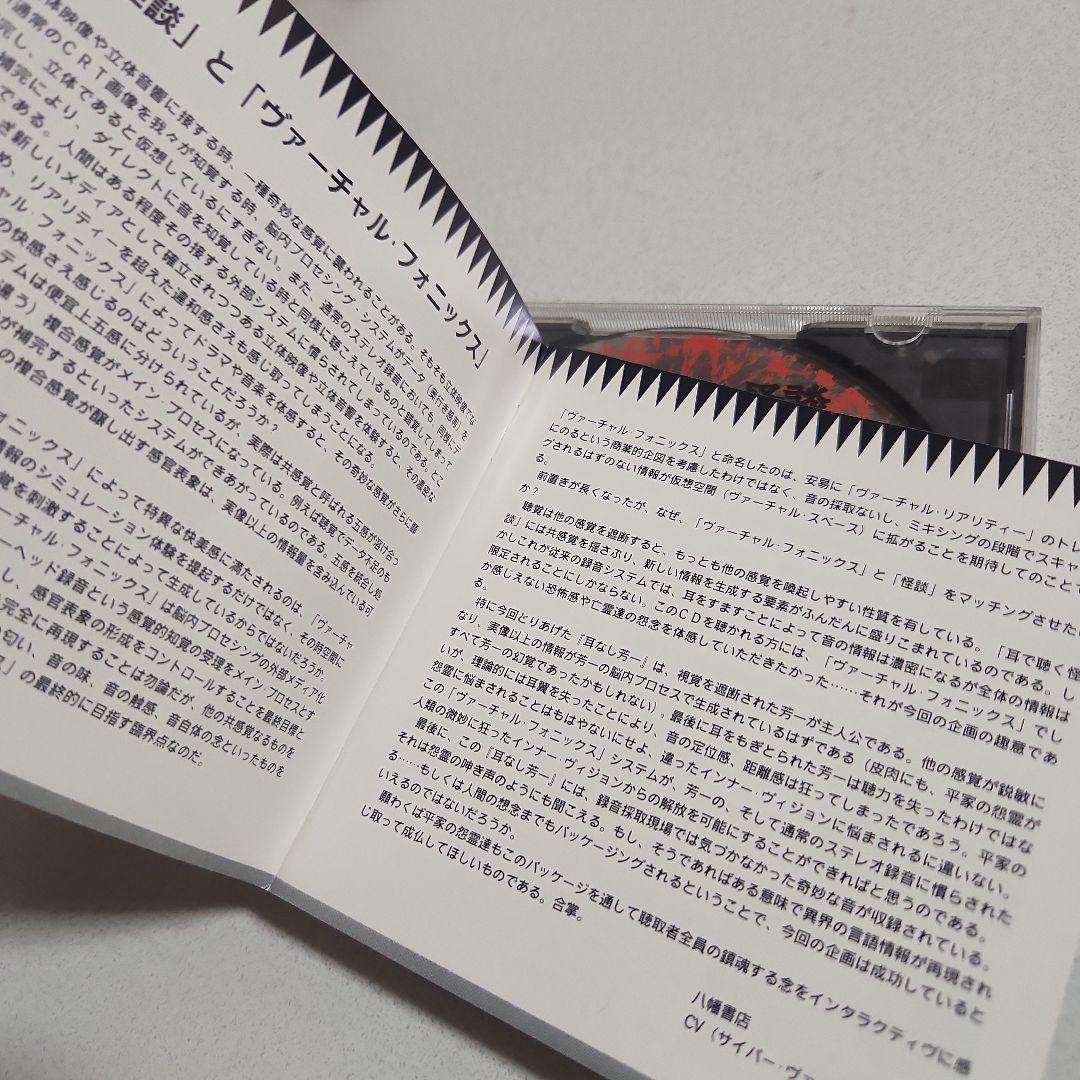 怪談」と「ヴァーチャル・フォニックス」
立体映像や立体音響に接する時、一種奇妙な感覚に襲われることがある。そもそも立体映像で
通常のCRT画像を我々が知覚する時、脳内プロセシング・システムがデータ（奥行き感等）を
完し、立体であると仮想しているにすぎない。また、通常のステレオ録音においても、同様にデ
補完により、ダイレクトに音を知覚している時と同様に聴こえているものと錯覚してしまって
である。人間はある程度その接する外部システムに慣らされてしまっているのである。とこ
ざ新しいメディアとして確立されつつある立体映像や立体音響を体験すると、その濃密な
め、リアリティーを超えた違和感さえも感じ取ってしまうことになる。
ャル・フォニックス」によってドラマや音楽を体感すると、その奇妙な感覚がさらに顕
の快感さえ感じるのはどういうことだろうか？
テムは便宜上五感に分けられているが、実際は共感覚と呼ばれる五感が溶け合っ
違う）複合感覚がメイン・プロセスになっている。例えば聴覚でデータ不足のも
が補完するといったシステムができあがっているのである。五感を統合し処
の複合感覚が醸し出す感官表象は、実像以上の情報量を含み込んでいる可
ォニックス」によって特異な快美感に満たされるのは、「ヴァーチ
情報のシミュレーション体験を提起するだけではなく、その時空間に
覚を刺激することによって生成しているからではないだろうか。
ーチャル フォニックス」は脳内プロセシングの外部メディア化
ーヘッド録音という感覚的知覚の受理をメイン・プロセスとす
し、感官表象の形成をコントロールすることを最終目標と
完全に再現することは勿論だが、他の共感覚なるものを
匂い、音の味、音の触感、音自体の念といったものを
ス」の最終的に目指す臨界点なのだ。
「ヴァーチャル・フォニックス」と命名したのは、安易に「ヴァーチャル・リアリティー」のトレ
にのるという商業的企図を考慮したわけではなく、音の採取ないし、ミキシングの段階でスキャ
グされるはずのない情報が仮想空間（ヴァーチャル・スペース）に拡がることを期待してのことで
る。
前置きが長くなったが、なぜ、「ヴァーチャル・フォニックス」と「怪談」をマッチングさせたい
か？
聴覚は他の感覚を遮断すると、もっとも他の感覚を喚起しやすい性質を有している。「耳で聴く怪
談」には共感覚を揺さぶり、新しい情報を生成する要素がふんだんに盛りこまれているのである。し
かしこれが従来の録音システムでは、耳をすますことによって音の情報は濃密になるが全体の情報は
限定されることにしかならない。このCDを聴かれる方には、「ヴァーチャル・フォニックス」でし
か感じえない恐怖感や亡霊達の怨念を体感していただきたかった……それが今回の企画の趣意であ
る。
特に今回とりあげた『耳なし芳一』は、視覚を遮断された芳一が主人公である。他の感覚が鋭敏に
なり、実像以上の情報が芳一の脳内プロセスで生成されているはずである（皮肉にも、平家の怨霊が
すべて芳一の幻覚であったかもしれない）。最後に耳をもぎとられた芳一は聴力を失ったわけではな
いが、理論的には耳翼を失ったことにより、音の定位感、距離感は狂ってしまったであろう。平家の
怨霊に悩まされることはもはやないにせよ、違ったインナー・ヴィジョンに悩まされるに違いない。
この「ヴァーチャル・フォニックス」システムが、芳一の、そして通常のステレオ録音に慣らされた
人類の微妙に狂ったインナー・ヴィジョンからの解放を可能にすることができればと思うのである。
最後に、この『耳なし芳一』には、録音採取現場では気づかなかった奇妙な音が収録されている。
それは怨霊の呻き声のようにも聞こえる。もし、そうであればある意味で異界の言語情報が再現され
る……もしくは人間の想念までもパッケージングされるということで、今回の企画は成功していると
いえるのではないだろうか。
願わくば平家の怨霊達もこのパッケージを通して聴取者全員の鎮魂する念をインタラクティヴに感
じ取って成仏してほしいものである。合掌。
八幡書店
CV（サイバー・ヴァ
怪談